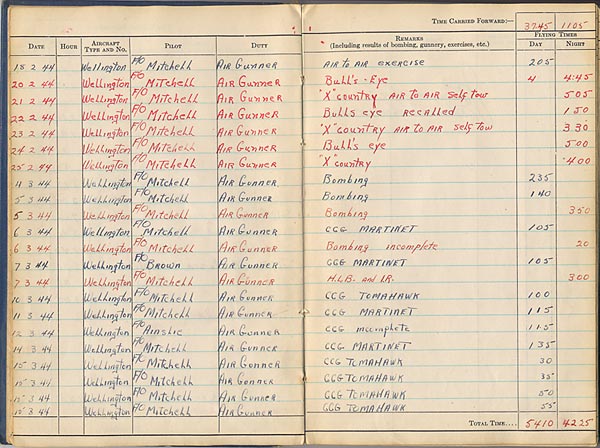 TIME CARRIED FORWARD:— 3745 1105
DATE HOUR AIRCRAFT TYPE AND NO. PILOT DUTY REMARKS (Including results of bombing, gunnery, exercises, etc.) FLYING TIMES DAY NIGHT
18 2 44 Wellington F/O Mitchell AIR GUNNER AIR TO AIR EXERCISE 205
20 2 44 Wellington F/O Mitchell AIR GUNNER Bull's-Eye 4 445
21 2 44 Wellington F/O Mitchell AIR GUNNER "X" country AIR TO AIR SELF TOW 505
22 2 44 Wellington F/O Mitchell AIR GUNNER Bulls eye RECALLED 150
23 2 44 Wellington F/O Mitchell AIR GUNNER "X" country AIR TO AIR SELF TOW 330
24 2 44 Wellington F/O Mitchell AIR GUNNER Bull's eye 500
25 2 44 Wellington F/O Mitchell AIR GUNNER "X" country 400
4 3 44 Wellington F/O Mitchell AIR GUNNER Bombing 235
5 3 44 Wellington F/O Mitchell AIR GUNNER Bombing 140
5 3 44 Wellington F/O Mitchell AIR GUNNER Bombing 350
6 3 44 Wellington F/O Mitchell AIR GUNNER CCG MARTINET 105
6 3 44 Wellington F/O Mitchell AIR GUNNER Bombing incomplete 20
7 3 44 Wellington F/O BROWN AIR GUNNER CCG MARTINET 105
7 3 44 Wellington F/O Mitchell AIR GUNNER H.L.B. and I.R. 300
10 3 44 Wellington F/O Mitchell AIR GUNNER CCG TOMAHAWK 100
11 3 44 Wellington F/O Mitchell AIR GUNNER CCG MARTINET 115
12 3 44 Wellington F/O Ainslie AIR GUNNER CCG incomplete 115
14 3 44 Wellington F/O Mitchell AIR GUNNER CCG MARTINET 135
15 3 44 Wellington F/O Mitchell AIR GUNNER CCG TOMAHAWK 30
15 3 44 Wellington F/O Mitchell AIR GUNNER CCG TOMAHAWK 35
15 3 44 Wellington F/O Mitchell AIR GUNNER CCG TOMAHAWK 50
15 3 44 Wellington F/O Mitchell AIR GUNNER CCG TOMAHAWK 55
TOTAL TIME.... 5410 4225